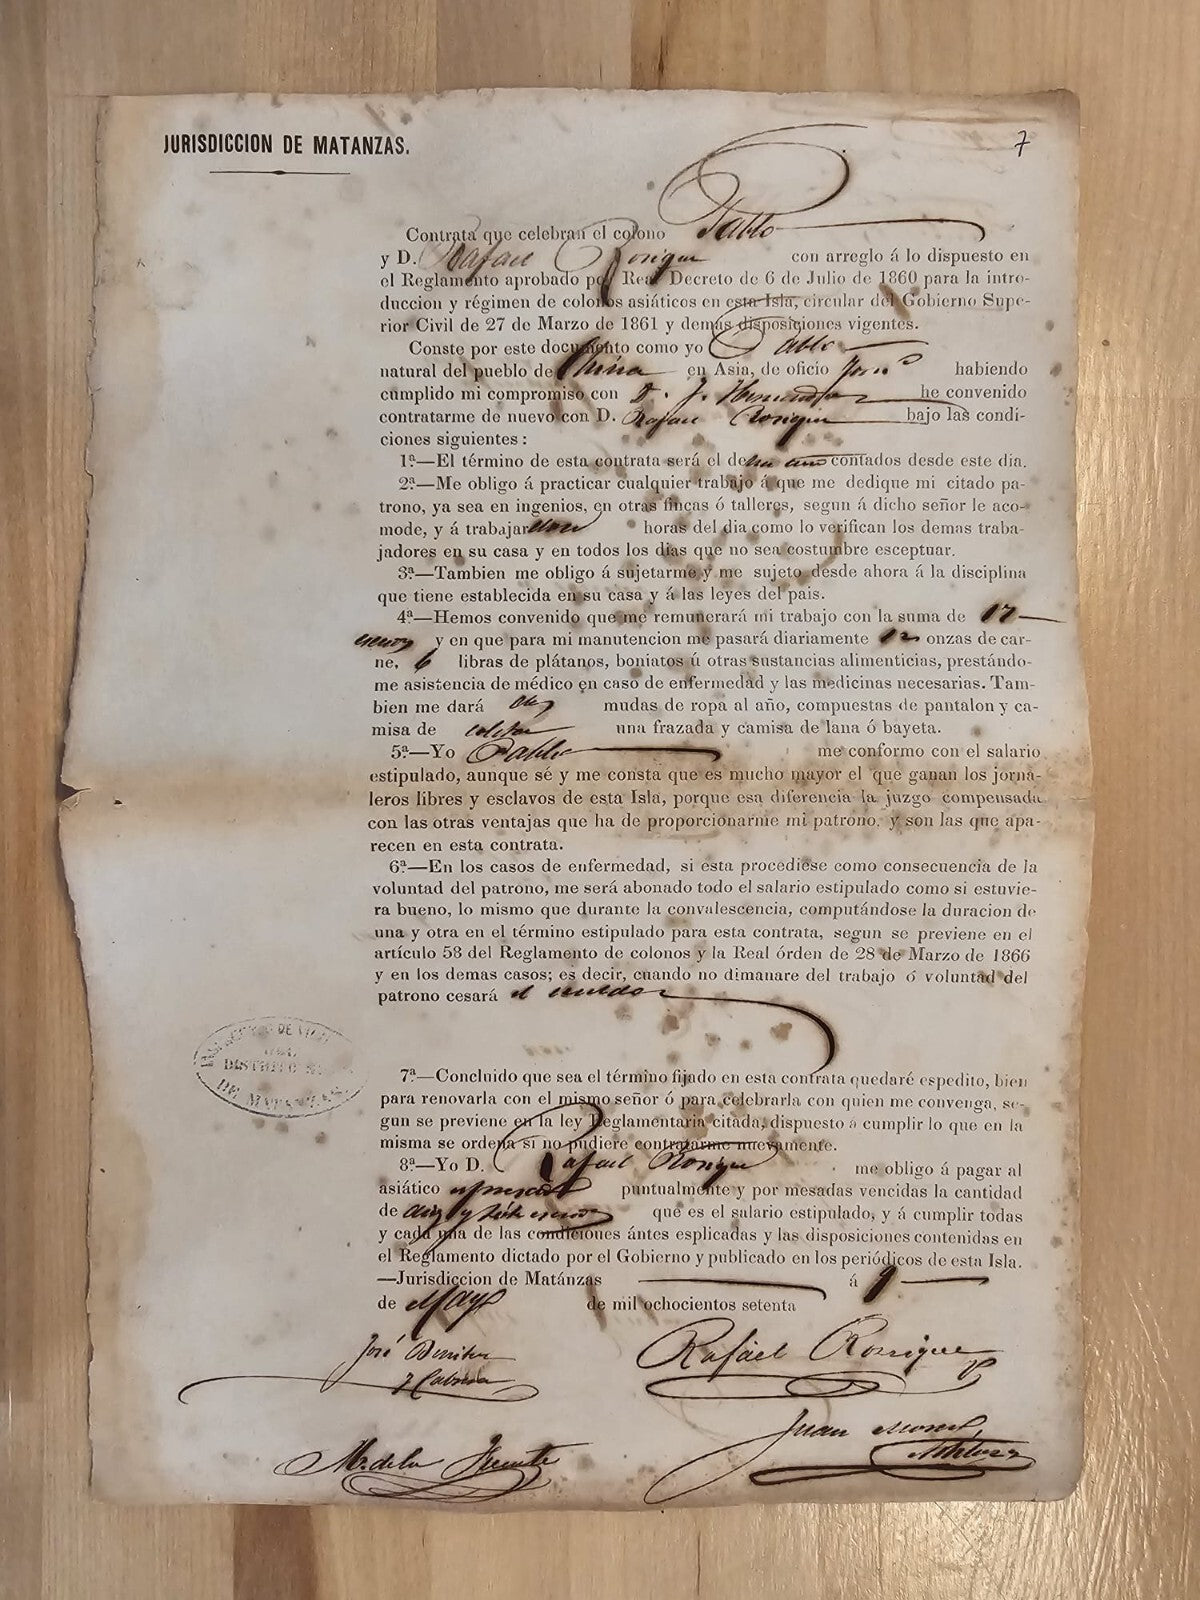 JURISDICCION DE MATANZAS.
7
Contrata que celebran el colono Pablo
y D. Rafael con arreglo á lo dispuesto en
el Reglamento aprobado por Real Decreto de 6 de Julio de 1860 para la intro-
duccion y régimen de colonos asiáticos en esta Isla, circular del Gobierno Supe-
rior Civil de 27 de Marzo de 1861 y demás disposiciones vigentes.
Conste por este documento como yo Pablo
natural del pueblo de China en Asia, de oficio habiendo
cumplido mi compromiso con D. J. he convenido
contratarme de nuevo con D. Rafael bajo las condi-
ciones siguientes:
1ª—El término de esta contrata será el de un año contados desde este dia.
2ª—Me obligo á practicar cualquier trabajo á que me dedique mi citado pa-
trono, ya sea en ingenios, en otras fincas ó talleres, segun á dicho señor le aco-
mode, y á trabajar horas del dia como lo verifican los demas traba-
jadores en su casa y en todos los dias que no sea costumbre esceptuar.
3ª—Tambien me obligo á sujetarme y me sujeto desde ahora á la disciplina
que tiene establecida en su casa y á las leyes del pais.
4ª—Hemos convenido que me remunerará mi trabajo con la suma de 17
escudos y en que para mi manutencion me pasará diariamente 12 onzas de car-
ne, 6 libras de plátanos, boniatos ú otras sustancias alimenticias, prestándo-
me asistencia de médico en caso de enfermedad y las medicinas necesarias. Tam-
bien me dará dos mudas de ropa al año, compuestas de pantalon y ca-
misa de una frazada y camisa de lana ó bayeta.
5ª—Yo Pablo me conformo con el salario
estipulado, aunque sé y me consta que es mucho mayor el que ganan los jorna-
leros libres y esclavos de esta Isla, porque esa diferencia la juzgo compensada
con las otras ventajas que ha de proporcionarme mi patrono, y son las que apa-
recen en esta contrata.
6ª—En los casos de enfermedad, si esta procediese como consecuencia de la
voluntad del patrono, me será abonado todo el salario estipulado como si estuvie-
ra bueno, lo mismo que durante la convalescencia, computándose la duracion de
una y otra en el término estipulado para esta contrata, segun se previene en el
artículo 58 del Reglamento de colonos y la Real órden de 28 de Marzo de 1866
y en los demas casos; es decir, cuando no dimanare del trabajo ó voluntad del
patrono cesará el sueldo
DE
DISTRITO
DE MATANZAS
7ª—Concluido que sea el término fijado en esta contrata quedaré espedito, bien
para renovarla con el mismo señor ó para celebrarla con quien me convenga, se-
gun se previene en la ley Reglamentaria citada, dispuesto á cumplir lo que en la
misma se ordena si no pudiere contratarme nuevamente.
8ª—Yo D. Rafael me obligo á pagar al
asiático espresado puntualmente y por mesadas vencidas la cantidad
de diez y siete escudos que es el salario estipulado, y á cumplir todas
y cada una de las condiciones ántes esplicadas y las disposiciones contenidas en
el Reglamento dictado por el Gobierno y publicado en los periódicos de esta Isla.
—Jurisdiccion de Matánzas á 9
de Mayo de mil ochocientos setenta
José Benitez Rafael
y Cabrera
Juan
M. de la Fuente